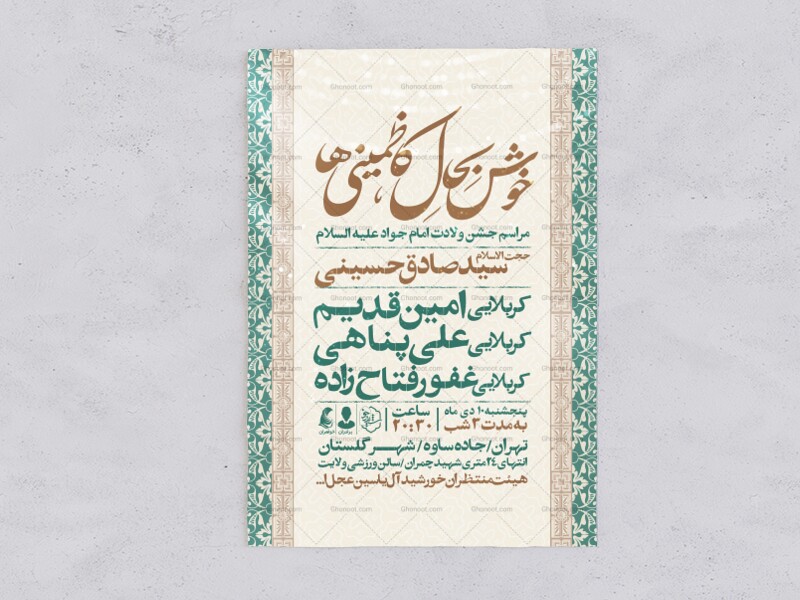 خوش بحال کاظمینی ها
مراسم جشن ولادت امام جواد علیه السلام
حجت الاسلام سید صادق حسینی
کربلایی امین قدیم
کربلایی علی پناهی
کربلایی غفور فتاح زاده
پنجشنبه ۱۰ دی ماه
به مدت ۳ شب
ساعت
۲۰:۳۰
برادران
خواهران
تهران/جاده ساوه/شهر گلستان
انتهای ۲۴ متری شهید چمران/سالن ورزشی ولایت
هیئت منتظران خورشید آل یاسین عجل ا...
Ghonoot.com